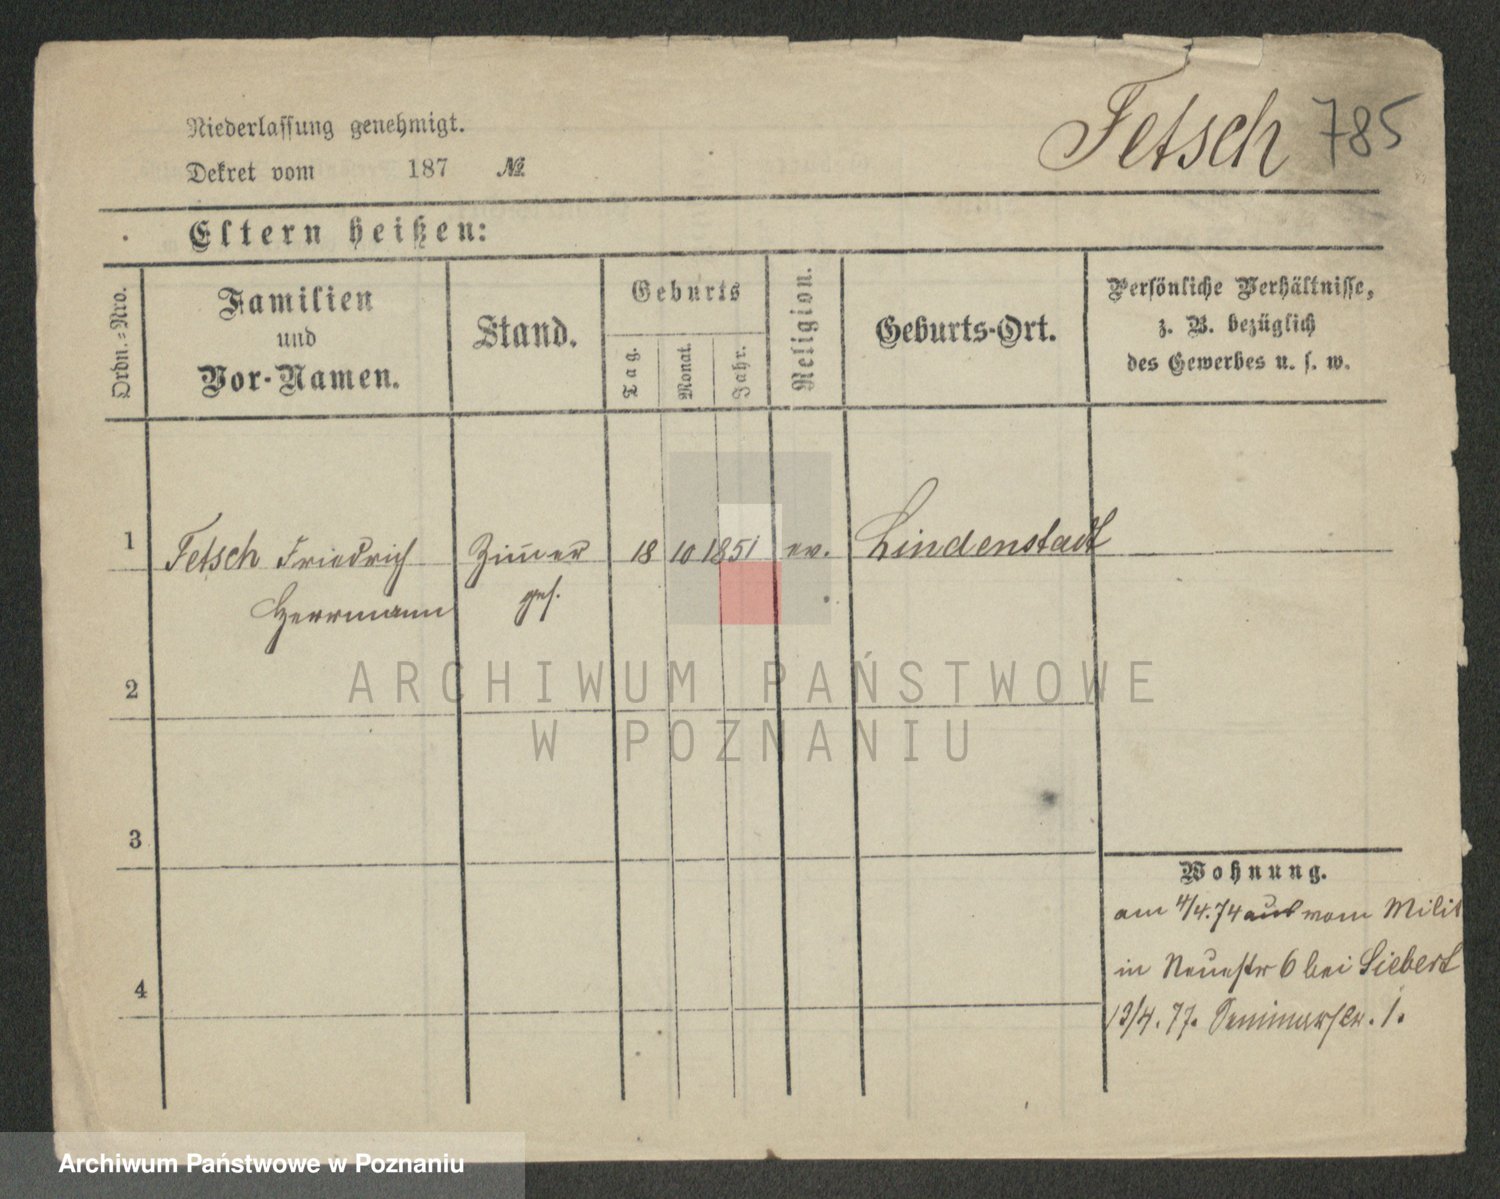 Fetsch 785
Niederlassung genehmigt.
Dekret vom 187 №
Eltern heißen:
Ordn.-Nro.
Familien
und
Vor-Namen.
Stand.
Geburts
Tag.
Monat.
Jahr.
Religion.
Geburts-Ort.
Persönliche Verhältnisse,
z. B. bezüglich
des Gewerbes u. s. w.
1 Fetsch Friedrich Zimer 18 10 1851 ev. Lindenstadt
Herrmann ges.
2
3
4
Wohnung.
am 4/4.74 aus vom Milit
in Neuestr 6 bei Siebert
13/4.77. Seminarstr. 1.
ARCHIWUM PAŃSTWOWE
W POZNANIU
Archiwum Państwowe w Poznaniu